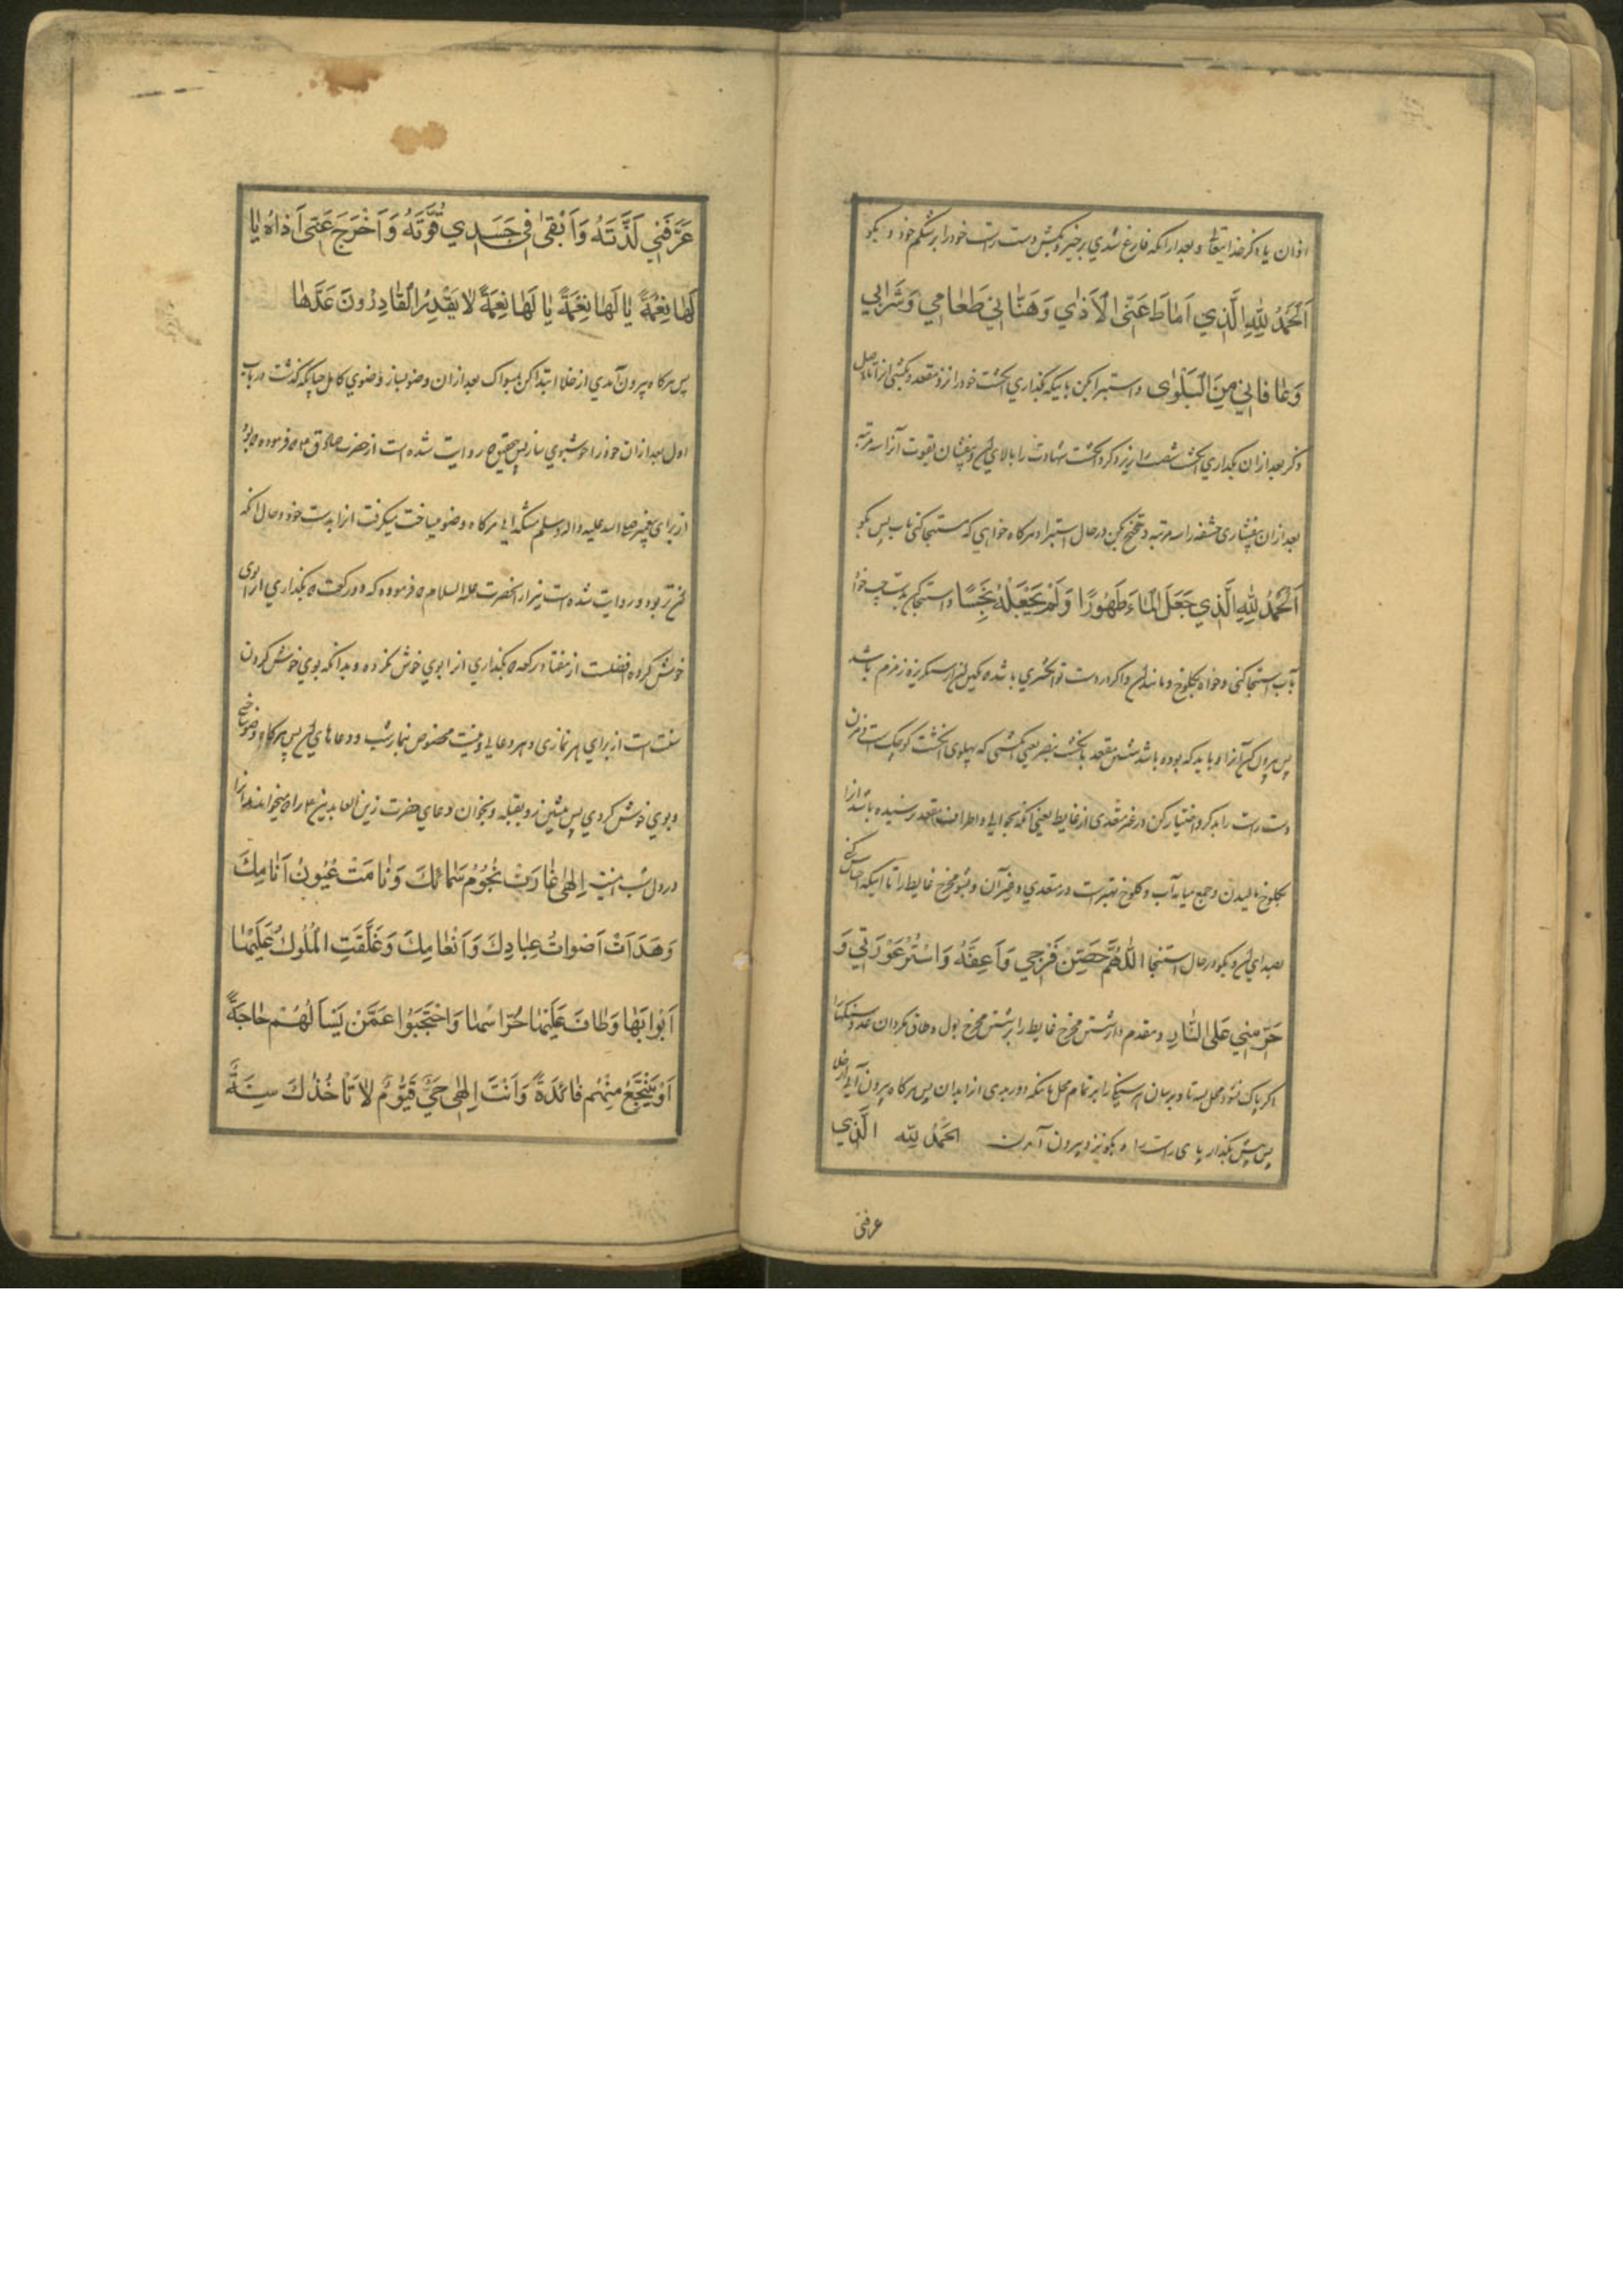 اذان یا ذکر خدایتعالی و بعد از انکه فارغ شدي برخیز و بکش دست راست خود را بر شکم خود و بکو
اَلْحَمْدُ لِلّٰهِ الَّذِي اَمٰاطَ عَنِّی الْاَذٰي وَهَنَّانِي طَعٰامِي وَشَرٰابِي
وَعٰافٰانِي مِنَ الْبَلْوٰی و استبرا بکن باینکه بگذاري انکشت خود را نزد مقعد و بکشی از انجا تا اصل
ذکر بعد از ان بگذاري انکشت را زیر ذکر و انکشت شهادت را بالاي ان و بفشان بقوت آنرا سه مرتبه
بعد از ان بفشاری حشفه را سه مرتبه و تنحنح بکن در حال استبرا و هرکاه خواهی که استنجا کنی بآب پس بکو
اَلْحَمْدُ لِلّٰهِ الَّذِي جَعَلَ الْمٰاءَ طَهُورًا وَلَمْ يَجْعَلْهُ نَجِسًا و استنجا کن بدست چپ خواه
بآب استنجا کنی و خواه بکلوخ و مانند ان و اکر در دست تو انکشتري باشد که نکین ان از سنکریزه زمزم باشد
پس بیرون کن آنرا و باید که بوده باشد شستن مقعد بانکشت بنصر یعنی انکشتی که پهلوی انکشت کوچک است و مزن
دست راست را بذکر و اختیار کن در غیر متعدی از غایط یعنی انکه بحوالی و اطراف مقعد نرسیده باشد آنرا
بکلوخ مالیدن و جمع میانه آب و کلوخ بهتر است در متعدي و غیر آن و بشو مخرج غایط را تا اینکه احساس کنی
بصداي ان و بکو در حال استنجا اَللّٰهُمَّ حَصِّنْ فَرْجِي وَاَعِفَّهُ وَاسْتُرْ عَوْرَتِي وَ
حَرِّمْنِي عَلَی النّٰارِ و مقدم دار شستن مخرج غایط را بر شستن مخرج بول و طاق بکردان عدد سنکها را
اکر پاک نشود محل بسه تا و برسان هر سنکی را بر تمام محل پس هرکاه بیرون آیی از خلا
پس پیش بگذار پای راست را و بکو نزد بیرون آمدن الْحَمْدُ لِلّٰهِ الَّذِي
عرفنی
عَرَّفَنِي لَذَّتَهُ وَاَبْقٰی فِي جَسَدِي قُوَّتَهُ وَاَخْرَجَ عَنِّی اَذٰاهُ يٰا
لَهٰا نِعْمَةً يٰا لَهٰا نِعْمَةً يٰا لَهٰا نِعْمَةً لٰا يَقْدِرُ الْقٰادِرُونَ قَدْرَهٰا
پس هرکاه بیرون آمدي از خلا ابتدا کن بمسواک بعد از ان وضو بساز وضوي کامل چنانکه کذشت در باب
اول بعد از ان خود را خوشبوي ساز پس بتحقیق که روایت شده است از حضرت صادق ع که فرموده که بود
از برای پیغمبر صلی الله علیه و اله و سلم مشکدانی هرکاه وضو میساخت میکرفت انرا بدست خود و حال انکه
ان تر بود و روایت شده است نیز از انحضرت علیه السلام که فرموده که دو رکعت که بگذاري از بوی
خوش کرده افضلست از هفتاد رکعت که بگذاري از بوي خوش نکرده و بدانکه بوي خوش کردن
سنت است از براي هر نمازی و هر دعایی و نیست مخصوص بنماز شب و دعاهاي ان پس هرکاه وضو ساختی
و بوي خوش کردي پس بنشین رو بقبله و بخوان دعاي حضرت زین العابدین ع را که میخواندند انرا
در دل شب اینست اِلٰهِی غٰارَتْ نُجُومُ سَمٰائِكَ وَنٰامَتْ عُيُونُ اَنٰامِكَ
وَهَدَاَتْ اَصْوٰاتُ عِبٰادِكَ وَاَنْعٰامِكَ وَغَلَّقَتِ الْمُلُوكُ عَلَيْهٰا
اَبْوٰابَهٰا وَطٰافَ عَلَيْهٰا حُرّٰاسُهٰا وَاحْتَجَبُوا عَمَّنْ يَسْاَلُهُمْ حٰاجَةً
اَوْ يَنْتَجِعُ مِنْهُمْ فٰائِدَةً وَاَنْتَ اِلٰهِی حَيٌّ قَيُّومٌ لٰا تَاْخُذُكَ سِنَةٌ